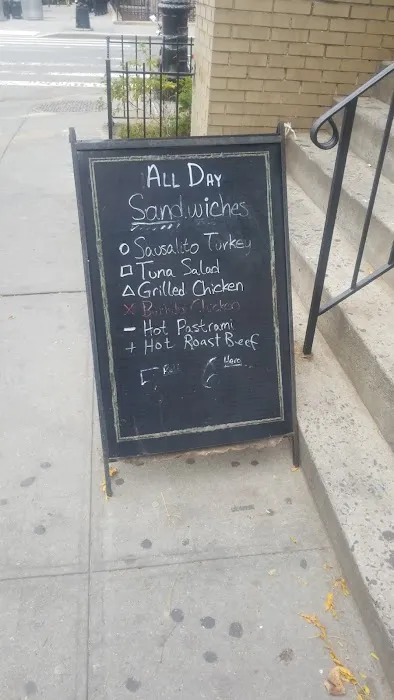 All Day
Sandwiches
o Sausalito Turkey
□ Tuna Salad
△ Grilled Chicken
x Chicken
– Hot Pastrami
+ Hot Roast Beef